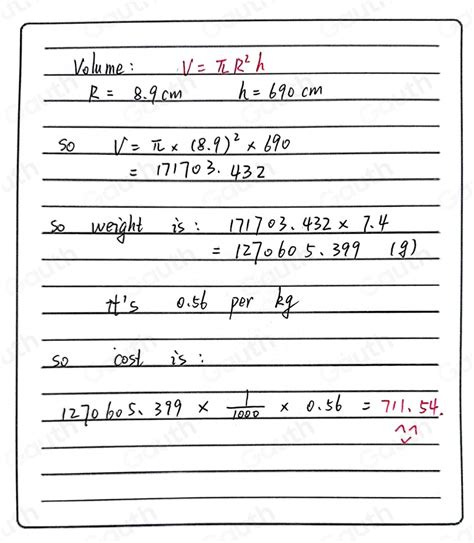 Volume: V = πR²h
R = 8.9cm h = 690 cm
so V = π × (8.9)² × 690
= 171703.432
so weight is: 171703.432 × 7.4
= 1270605.399 (g)
it's 0.56 per kg
so cost is:
1270605.399 × 1/1000 × 0.56 = 711.54.
Gauth